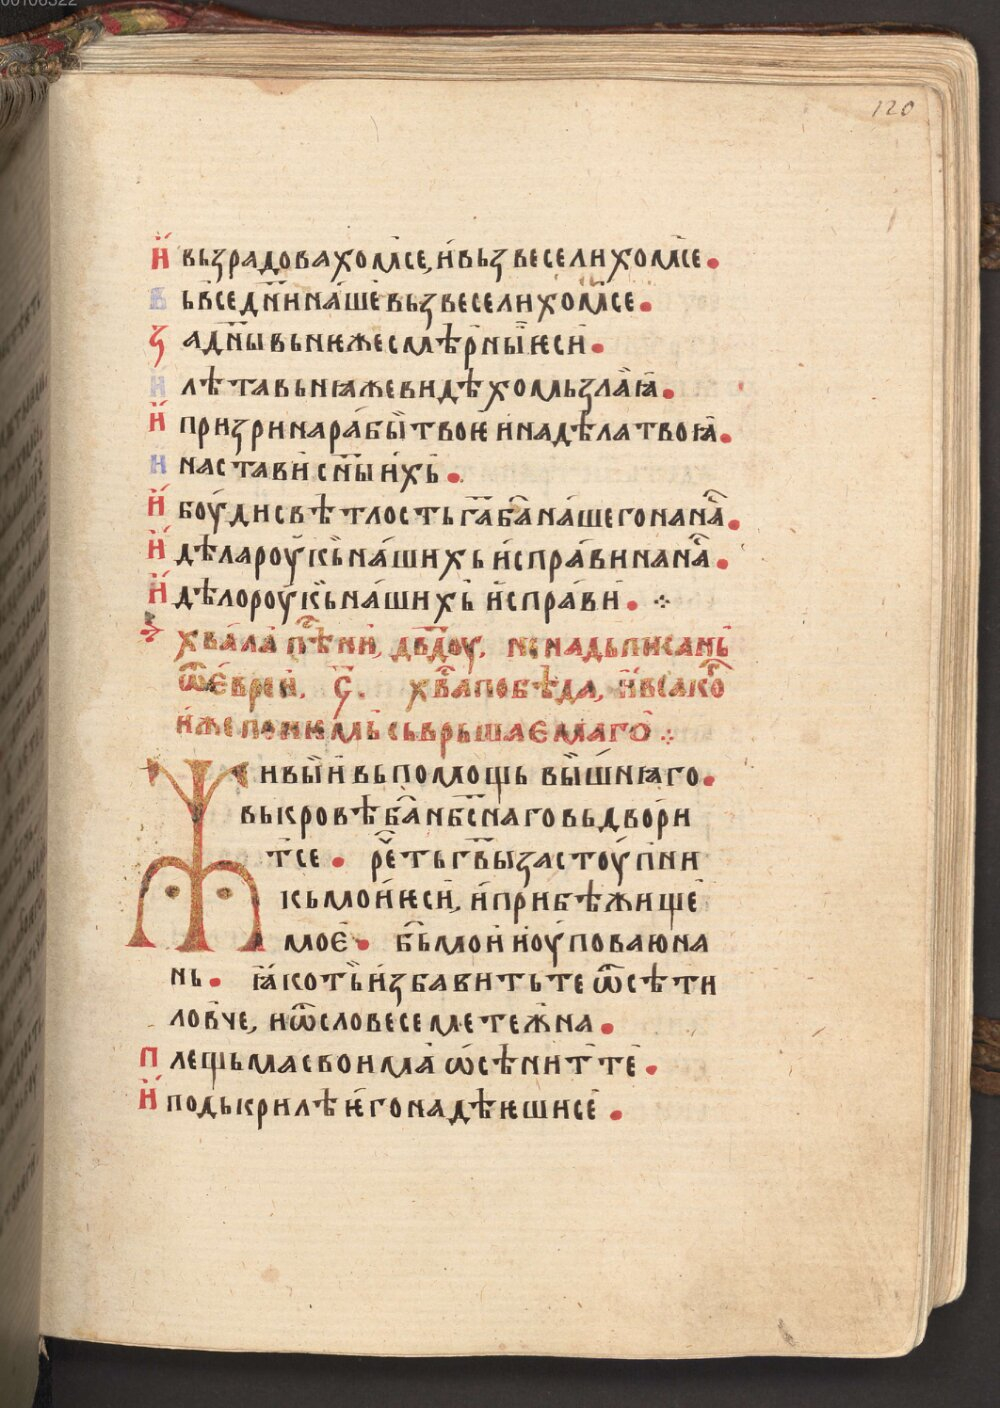 00108322
120
И҆ вьзрадовахом̑се, и҆ вьзвеселихом̑се.
В ьв̑се дн҃и на́ше вьзвеселихом̑се.
З а дн҃ы вь нѥже смѣрны́ ѥси̇̀.
И лѣта вь ꙗже видѣхомь злаꙗ̀.
И҆ призри на рабы̀ твоѥ и҆ на дѣла твоꙗ̀.
И настави сн҃ы и҆хь̀.
И҆ боу́ди свѣтлость га҃ ба҃ на́шего на на́с.
И҆ дѣла роу́кь на́шихь и҆спра́ви на на́с.
И҆ дѣло роу́кь на́шихь и҆спра́ви.
хвала̀ пѣ́ни, дв҃доу, не надьписань
ѿ е҆вреи̇̀, ҃ч. хв҃а побѣда, и҆ всꙗко
и҆же по немь̀ сьврьшаемаго
Живы́и вь помощь вы́шнꙗго.
вь кровѣ ба҃ нбⷭ҇наго вьдвори
тсе. рⷱ҇еть гв҃ы застоу́пни
кь мои ѥси̇̀, и҆ прибѣжище
моѐ. бь҃ мои и҆ оу҆поваю на
нь. ꙗко ть̀ и҆збавить те ѿ сѣти
ловче, и ѿ словесе мететжна.
П лещьма своима ѡ҆сѣнит те.
И҆ подь крилѣ ѥго надѣѥши се.